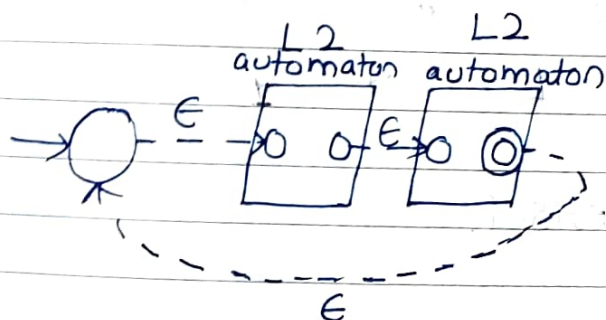 L2
automaton
L2
automaton
ϵ
ϵ
ϵ